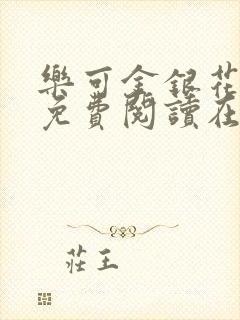 樂可金銀花
免費閱讀在
莊王